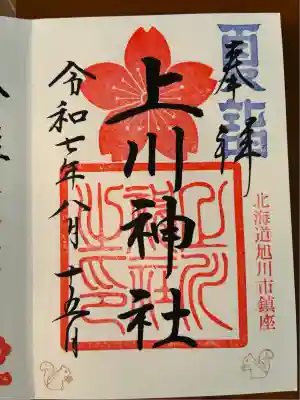 夏詣
奉拝
北海道旭川市鎮座
上川神社
令和七年八月十五日